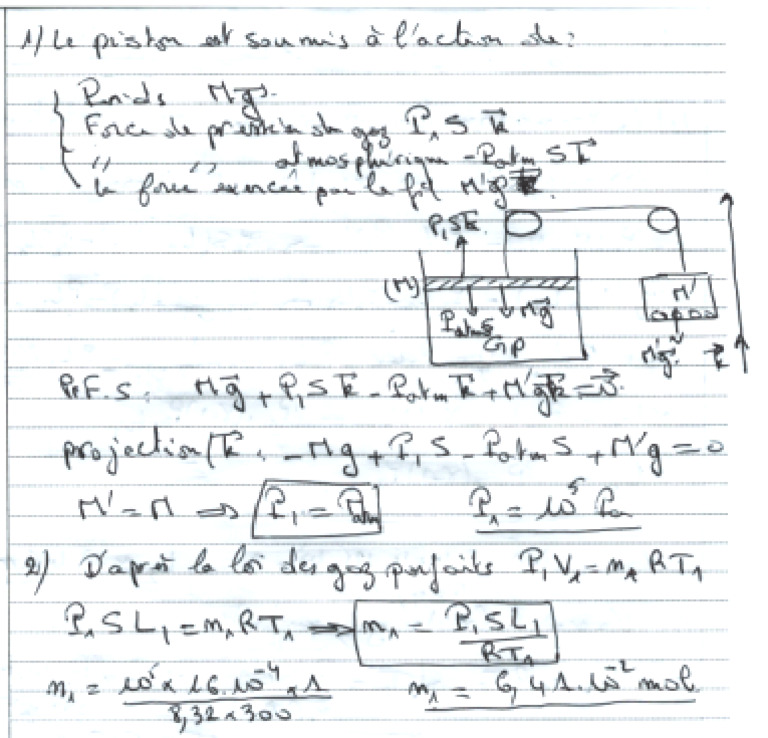 1) Le piston est soumis à l'action de :
Poids M\vec{g}
Force de pression du gaz P₁ S \vec{k}
" " atmosphérique - Patm S \vec{k}
la force exercée par le fil M'g
P₁S\vec{k}
(M)
M'
Patm S
M\vec{g}
GP
M'\vec{g}
\vec{k}
P.F.S : M\vec{g} + P₁S\vec{k} - Patm\vec{k} + M'g\vec{k} = \vec{0}
projection/\vec{k} : -Mg + P₁S - PatmS + M'g = 0
M' = M ⇒ P₁ = Patm P₁ = 10⁵ Pa
2) D'après la loi des gaz parfaits P₁V₁ = n₁RT₁
P₁SL₁ = n₁RT₁ ⇒ n₁ = P₁SL₁ / RT₁
n₁ = 10⁵ × 16.10⁻⁴ × 1 / 8,32 × 300 n₁ = 6,41.10⁻² mol